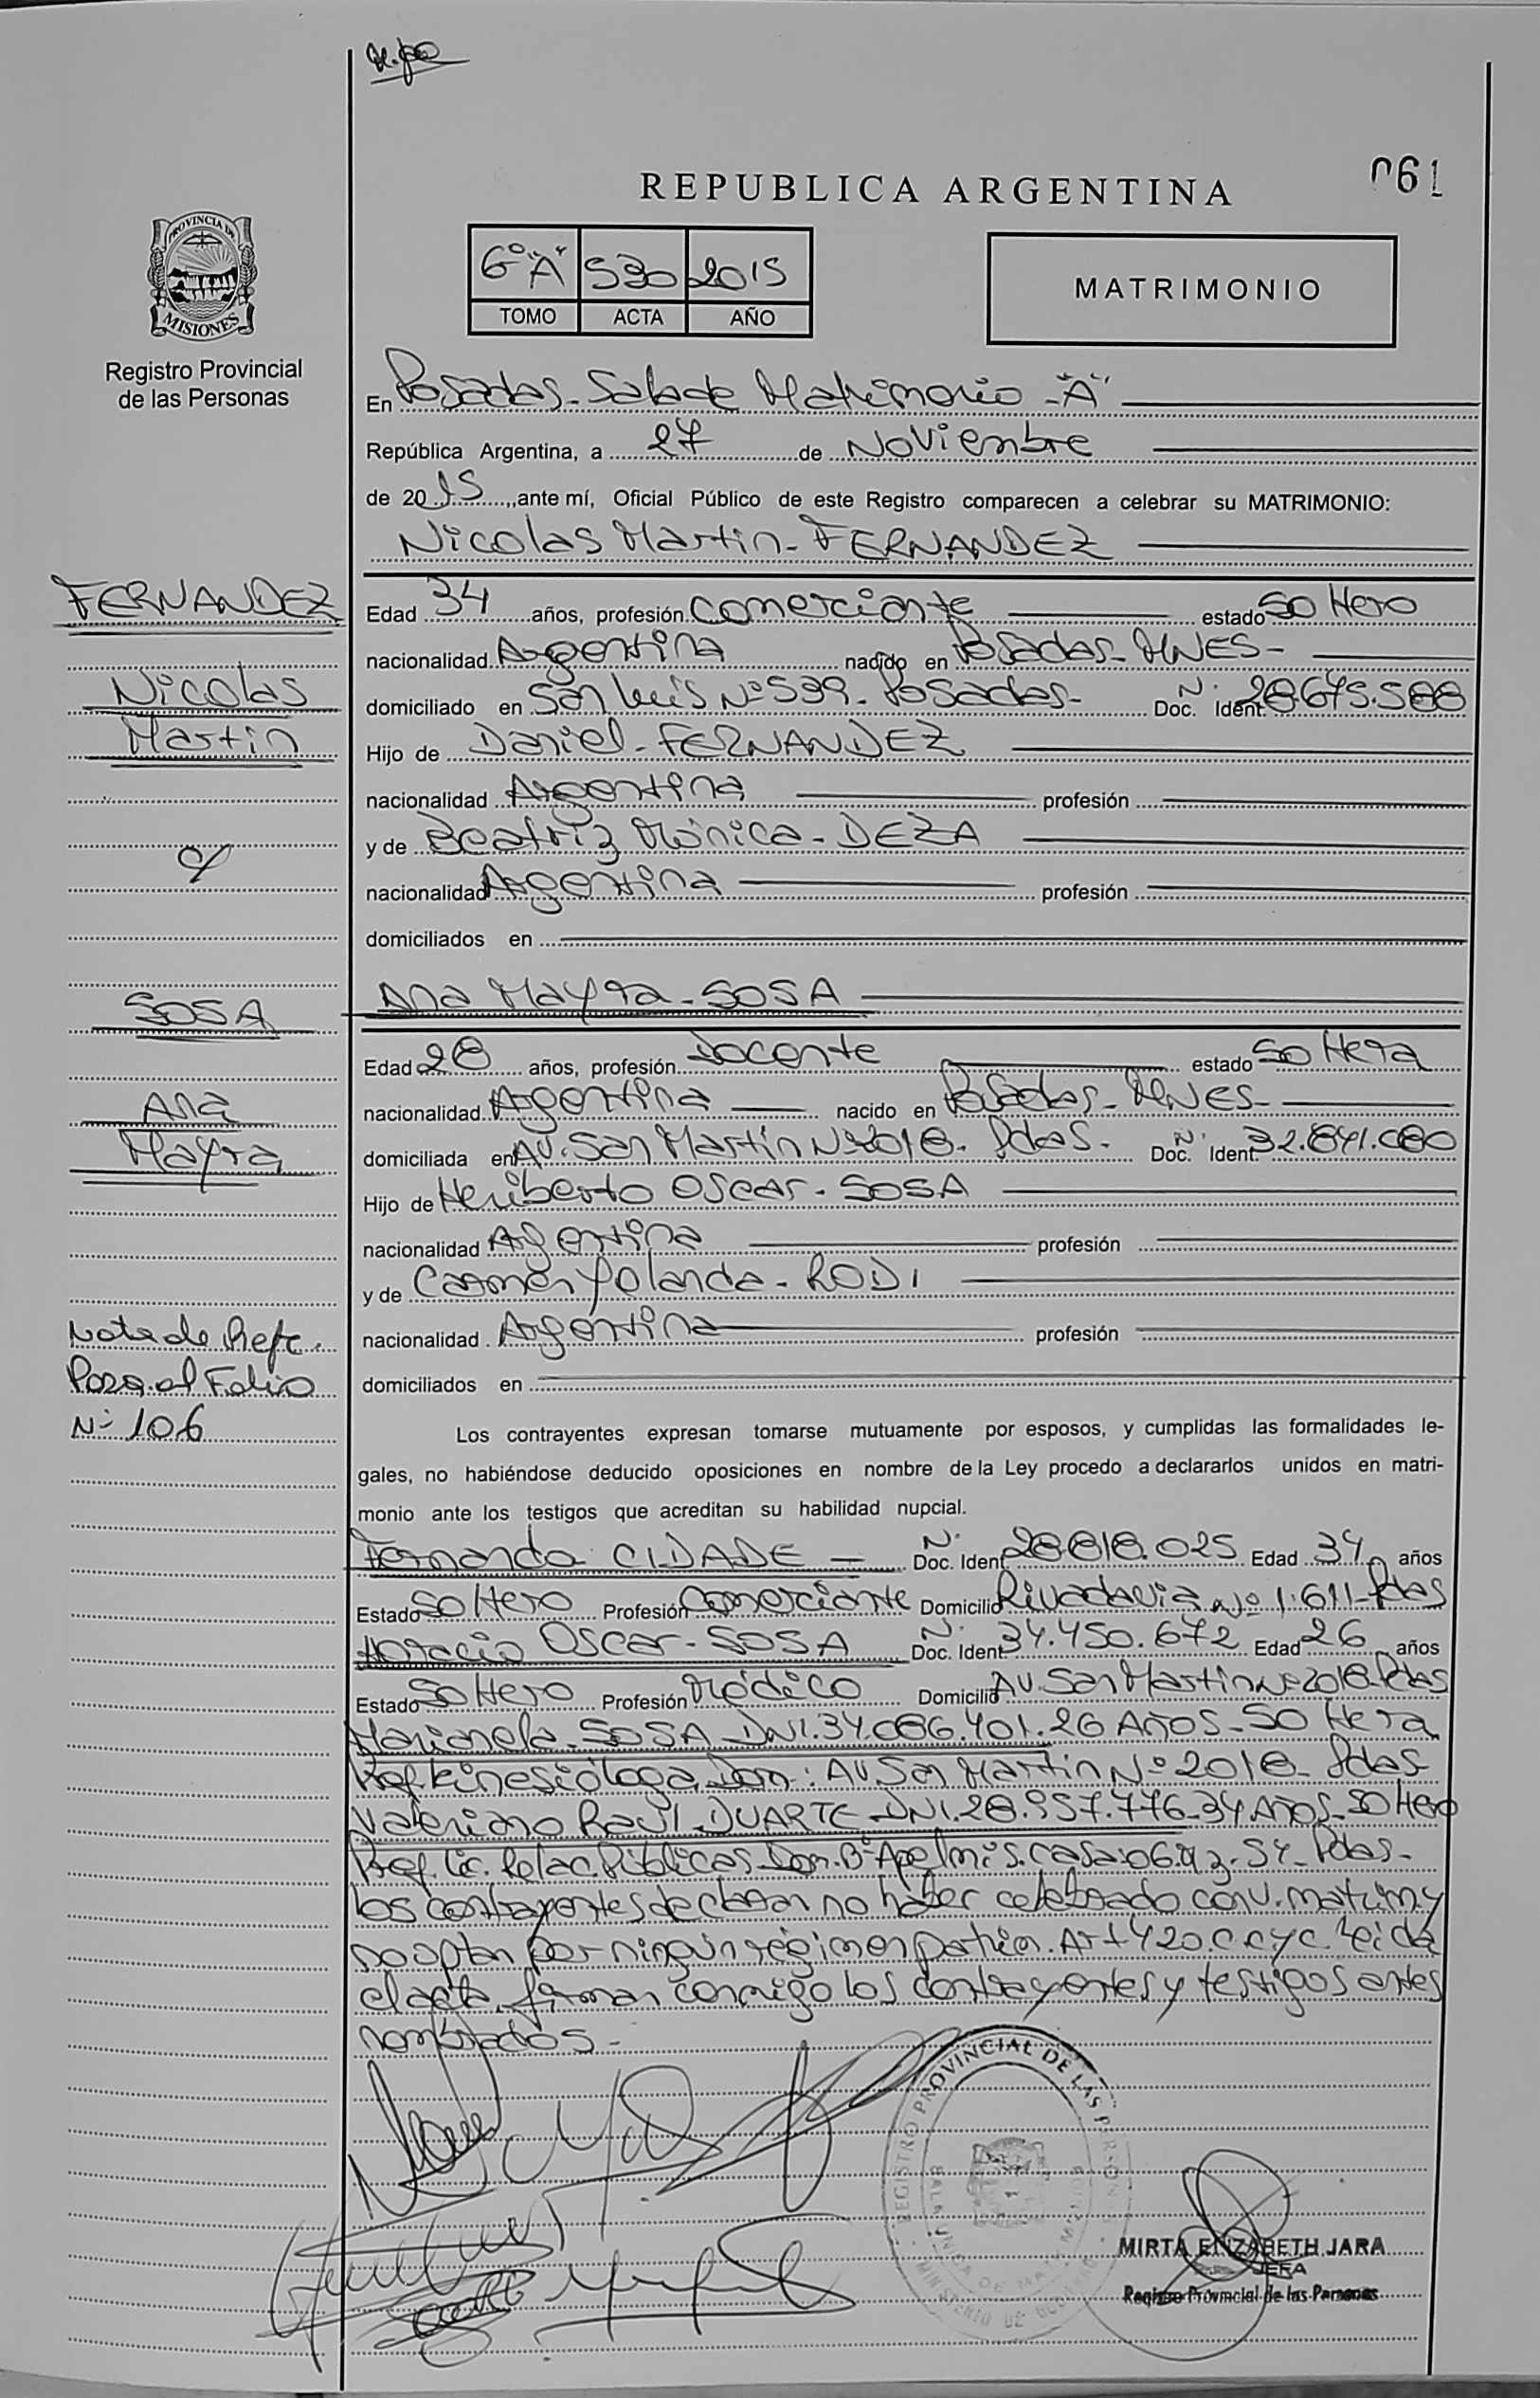 061
REPUBLICA ARGENTINA
PROVINCIA DE
MISIONES
Registro Provincial
de las Personas
6º "A" 530 2015
TOMO ACTA AÑO
MATRIMONIO
En Posadas - Sala de Matrimonio - "A"
República Argentina, a 27 de Noviembre
de 2015, ante mí, Oficial Público de este Registro comparecen a celebrar su MATRIMONIO:
Nicolas Martin - FERNANDEZ
FERNANDEZ
Nicolas
Martin
c/
SOSA
Ana
Mayra
Nota de Refe.
Pasa al Folio
Nº 106
Edad 34 años, profesión Comerciante estado Soltero
nacionalidad Argentina nacido en Posadas - MNES -
domiciliado en San Luis Nº 539 - Posadas - Doc. Ident. N. 28.675.588
Hijo de Daniel - FERNANDEZ
nacionalidad Argentina profesión
y de Beatriz Mónica - DEZA
nacionalidad Argentina profesión
domiciliados en
Ana Mayra - SOSA
Edad 28 años, profesión Docente estado Soltera
nacionalidad Argentina nacido en Posadas - MNES -
domiciliada en AV. San Martin Nº 2018 - Pdas - Doc. Ident. N. 32.841.080
Hijo de Heriberto Oscar - SOSA
nacionalidad Argentina profesión
y de Carmen Yolanda - RODI
nacionalidad Argentina profesión
domiciliados en
Los contrayentes expresan tomarse mutuamente por esposos, y cumplidas las formalidades le-
gales, no habiéndose deducido oposiciones en nombre de la Ley procedo a declararlos unidos en matri-
monio ante los testigos que acreditan su habilidad nupcial.
Fernando CIDADE - Doc. Ident. N. 28.818.025 Edad 34 años
Estado Soltero Profesión Comerciante Domicilio Rivadavia Nº 1.611 - Pdas
Horacio Oscar - SOSA Doc. Ident. N. 34.450.672 Edad 26 años
Estado Soltero Profesión Médico Domicilio AV. San Martin Nº 2018 - Pdas
Marianela - SOSA - DNI. 34.086.401 - 26 Años - Soltera
Prof. Kinesióloga, Dom: AV San Martin Nº 2018 - Pdas -
Valeriano Raúl - DUARTE - DNI. 28.957.776 - 34 Años - Soltero
Prof. Lic. Relac. Públicas - Dom. Bº Casa: 06 54 - Pdas -
los contrayentes declaran no haber celebrado conv. matrim y
no optan por ningún régimen patrim. Art 420. C C y C. Leída
el acta, firman conmigo los contrayentes y testigos antes
nombrados -
REGISTRO PROVINCIAL DE LAS PERSONAS
SALA UNICA DE MATRIMONIOS
MINISTERIO DE GOBIERNO
MIRTA ELIZABETH JARA
JEFA
Registro Provincial de las Personas